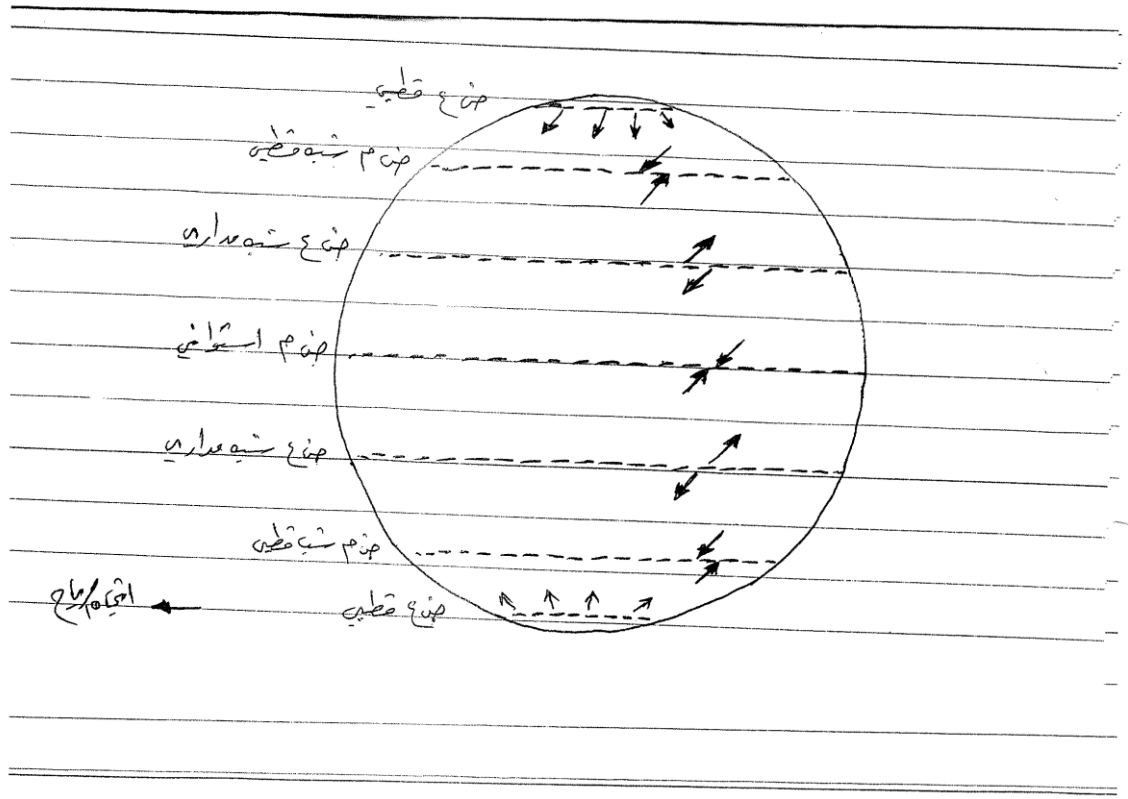 ض ع قطبي
ض م شبه قطبي
ض ع شبه مداري
ض م استوائي
ض ع شبه مداري
ض م شبه قطبي
ض ع قطبي
اتجاه الرياح